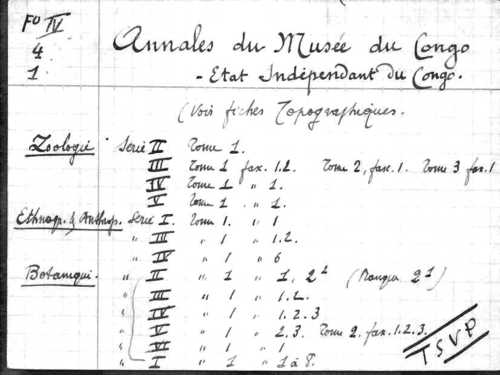 Fo IV
4
1
Annales du Musée du Congo
- Etat Indépendant du Congo.
(Voir fiches Topographiques.
Zoologie Serie II Tome 1.
III Tome 1 fasc. 1.2. Tome 2, fasc. 1. Tome 3 fasc. 1
IV Tome 1 " 1.
V Tome 1 " 1.
Ethnogr. & Anthrop. Serie I. Tome 1. " 1
" III " 1 " 1.2.
" IV " 1 " 6
Botanique. " II " 1 " 1, 2¹ (Manque 2¹)
" III " 1 " 1.2.
" IV " 1 " 1.2.3
" V " 1 " 2.3. Tome 2. fasc. 1.2.3.
" VI " 1 " 1
" I " 1 " 1 à 8.
TSVP